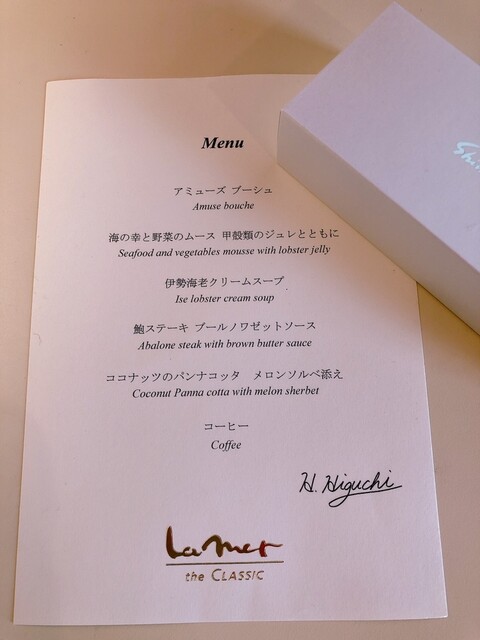 Menu
アミューズ ブーシュ
Amuse bouche
海の幸と野菜のムース 甲殻類のジュレとともに
Seafood and vegetables mousse with lobster jelly
伊勢海老クリームスープ
Ise lobster cream soup
鮑ステーキ ブールノワゼットソース
Abalone steak with brown butter sauce
ココナッツのパンナコッタ　メロンソルベ添え
Coconut Panna cotta with melon sherbet
コーヒー
Coffee
H. Higuchi
La mer
the CLASSIC